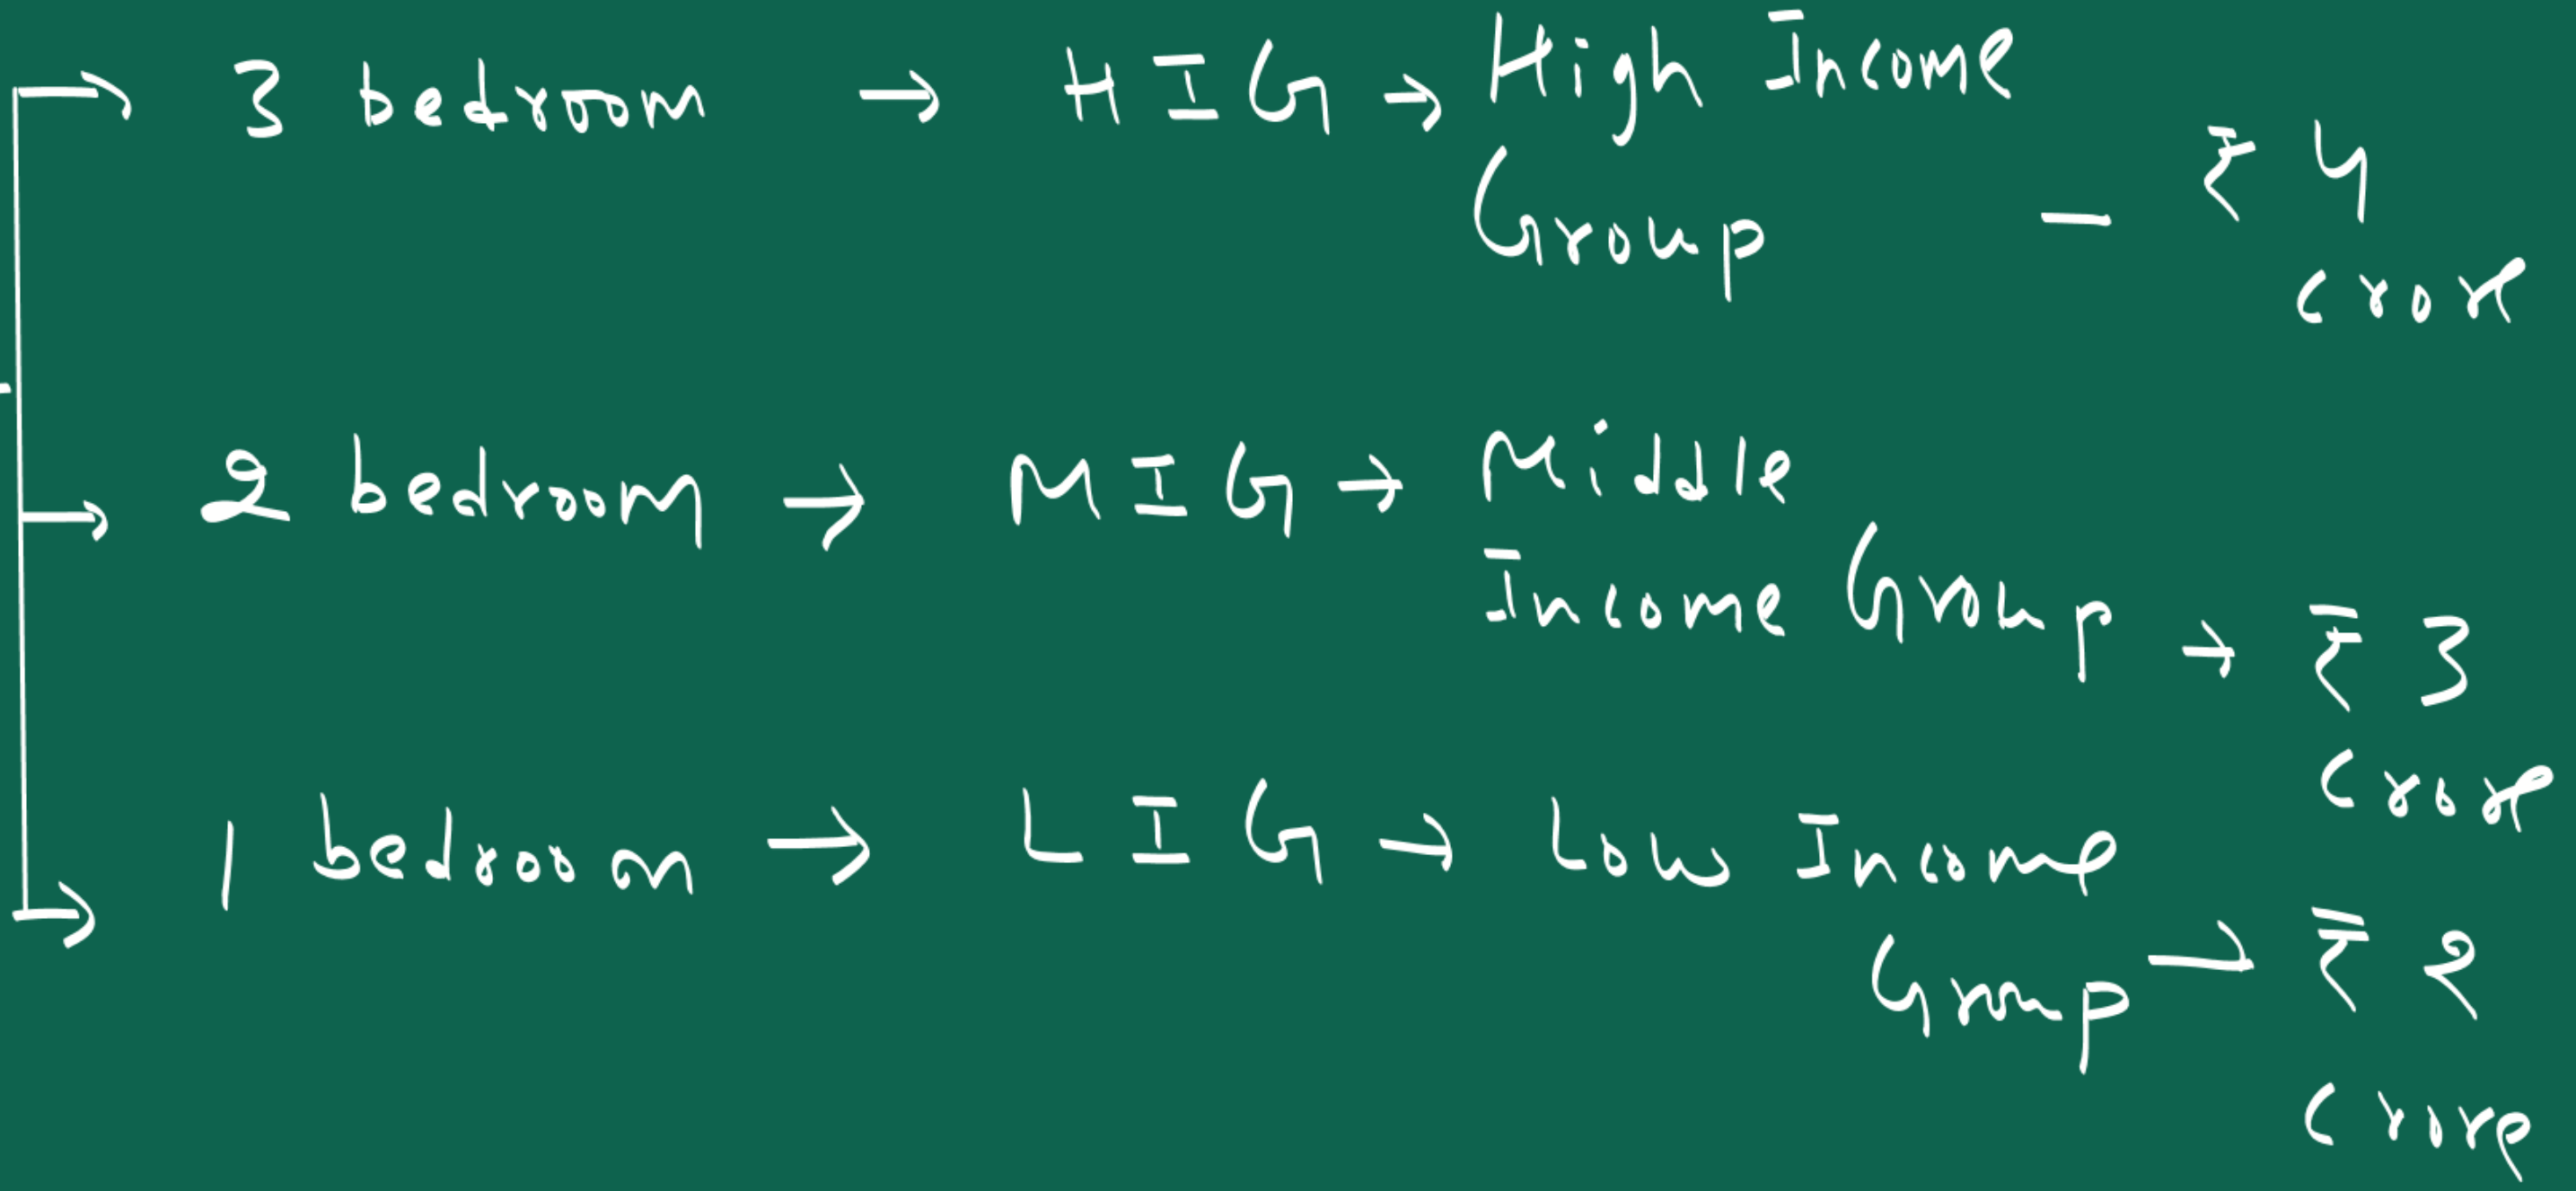 → 3 bedroom → HIG → High Income
Group - ₹ 4
crore
→ 2 bedroom → MIG → Middle
Income Group → ₹ 3
crore
→ 1 bedroom → LIG → Low Income
Group → ₹ 2
crore